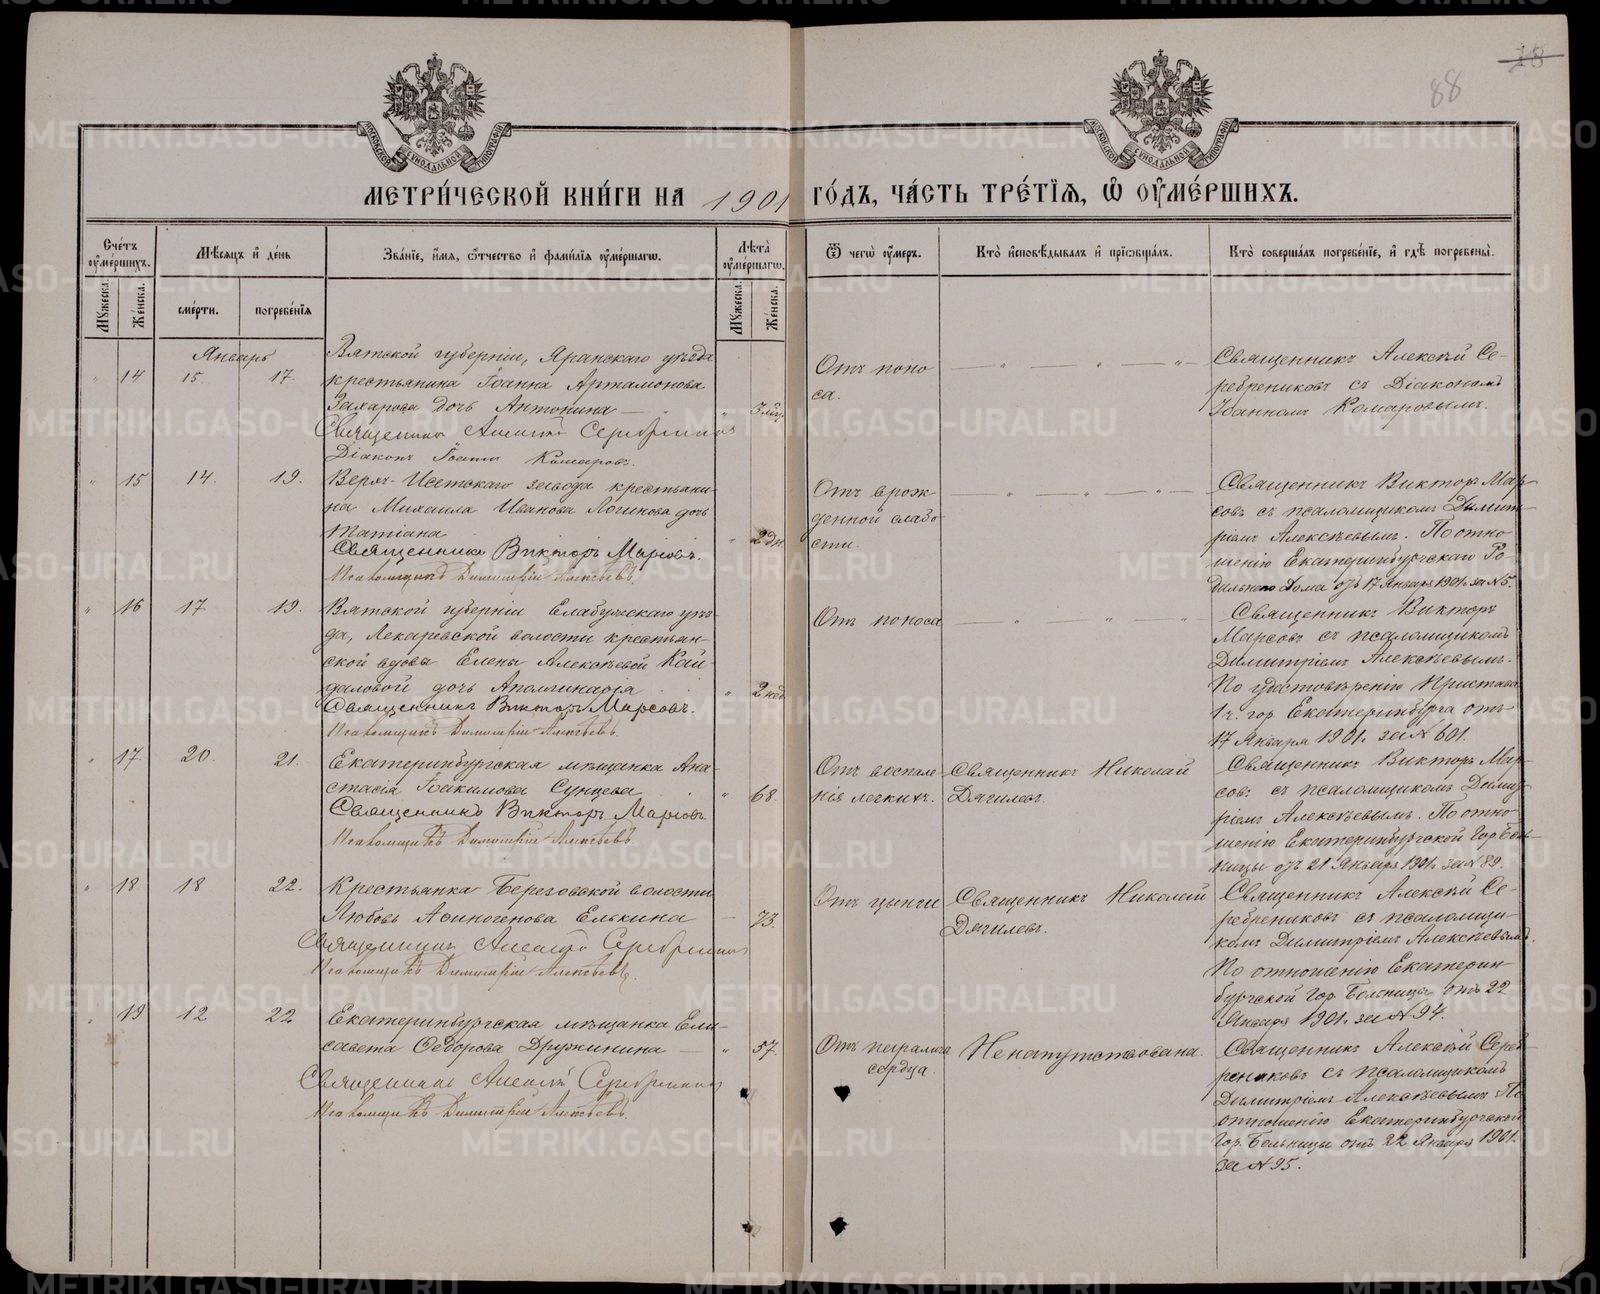 88
18
МОСКОВСКОЙ СУНОДАЛЬНОЙ ТИПОГРАФІИ
МОСКОВСКОЙ СУНОДАЛЬНОЙ ТИПОГРАФІИ
МЕТРИ́ЧЕСКОЙ КНИ́ГИ НА 1901 ГО́ДЪ, ЧА́СТЬ ТРЕ́ТІѦ, Ѿ ОУМЕ́РШИХЪ.
Сче́тъ оуме́ршихъ.
Мꙋ́жеска.
Же́нска.
Мѣ́сѧцъ и де́нь
сме́рти.
погребе́нїѧ
Зва́нїе, и́мѧ, ѻ́тчество и фами́лїѧ оуме́ршагѡ.
Лѣ́та оуме́ршагѡ.
Мꙋ́жеска.
Же́нска.
Ѿ чегѡ̀ оу́меръ.
Кто̀ исповѣ́дывалъ и прїѡбща́лъ.
Кто̀ соверша́лъ погребе́нїе, и гдѣ̀ погребены̀.
Январь
14 15 17.
Вятской губерніи, Яранскаго уѣзда
крестьянина Іоанна Артамонова
Захарова дочь Антонина
Священникъ Алексій Серебренниковъ
Діаконъ Іоаннъ Комаровъ.
Отъ поно-
са.
Священникъ Алексѣй Се-
ребрениковъ съ Діакономъ
Іоанномъ Комаровымъ.
15 14. 19.
Верхъ-Исетскаго завода крестьяни-
на Михаила Иванова Логинова дочь
Татіана
2 дн.
Священникъ Викторъ Марсовъ.
Псаломщикъ Димитрій Алексѣевъ.
Отъ врож-
денной слабо-
сти.
Священникъ Викторъ Мар-
совъ съ псаломщикомъ Димит-
ріемъ Алексѣевымъ. По отно-
шенію Екатеринбургскаго Ро-
дильнаго Дома отъ 17 Января 1901г. за № 5.
16 17 19.
Вятской губерніи Елабужскаго уѣз-
да, Лекаревской волости крестьян-
ской вдовы Елены Алексѣевой Кай-
даловой дочь Аполлинарія
2 нед.
Священникъ Викторъ Марсовъ.
Псаломщикъ Димитрій Алексѣевъ.
Отъ поноса
Священникъ Викторъ
Марсовъ съ псаломщикомъ
Димитріемъ Алексѣевымъ.
По удостовѣренію Пристава
1 ч. гор. Екатеринбурга отъ
17 Января 1901г. за № 601.
17. 20. 21.
Екатеринбургская мѣщанка Ана-
стасія Іоакимова Сунцева
68.
Священникъ Викторъ Марсовъ
Псаломщикъ Димитрій Алексѣевъ.
Отъ воспале-
нія легкихъ.
Священникъ Николай
Дягилевъ.
Священникъ Викторъ Мар-
совъ съ псаломщикомъ Димит-
ріемъ Алексѣевымъ. По отно-
шенію Екатеринбургской Гор. Боль-
ницы отъ 21 Января 1901г. за № 89.
18 18 22.
Крестьянка Березовской волости
Любовь Асиногенова Елькина
73.
Священникъ Алексій Серебренниковъ
Псаломщикъ Димитрій Алексѣевъ.
Отъ цынги
Священникъ Николай
Дягилевъ.
Священникъ Алексѣй Се-
ребрениковъ съ псаломщи-
комъ Димитріемъ Алексѣевымъ.
По отношенію Екатерин-
бургской Гор. Больницы отъ 22
Января 1901г. за № 94.
19 12 22
Екатеринбургская мѣщанка Ели-
савета Ѳедорова Дружинина
57.
Священникъ Алексій Серебренниковъ
Псаломщикъ Димитрій Алексѣевъ.
Отъ паралича
сердца.
Ненапутствована.
Священникъ Алексѣй Сереб-
рениковъ съ псаломщикомъ
Димитріемъ Алексѣевымъ. По
отношенію Екатеринбургской
Гор. Больницы отъ 22 Января 1901г.
за № 95.